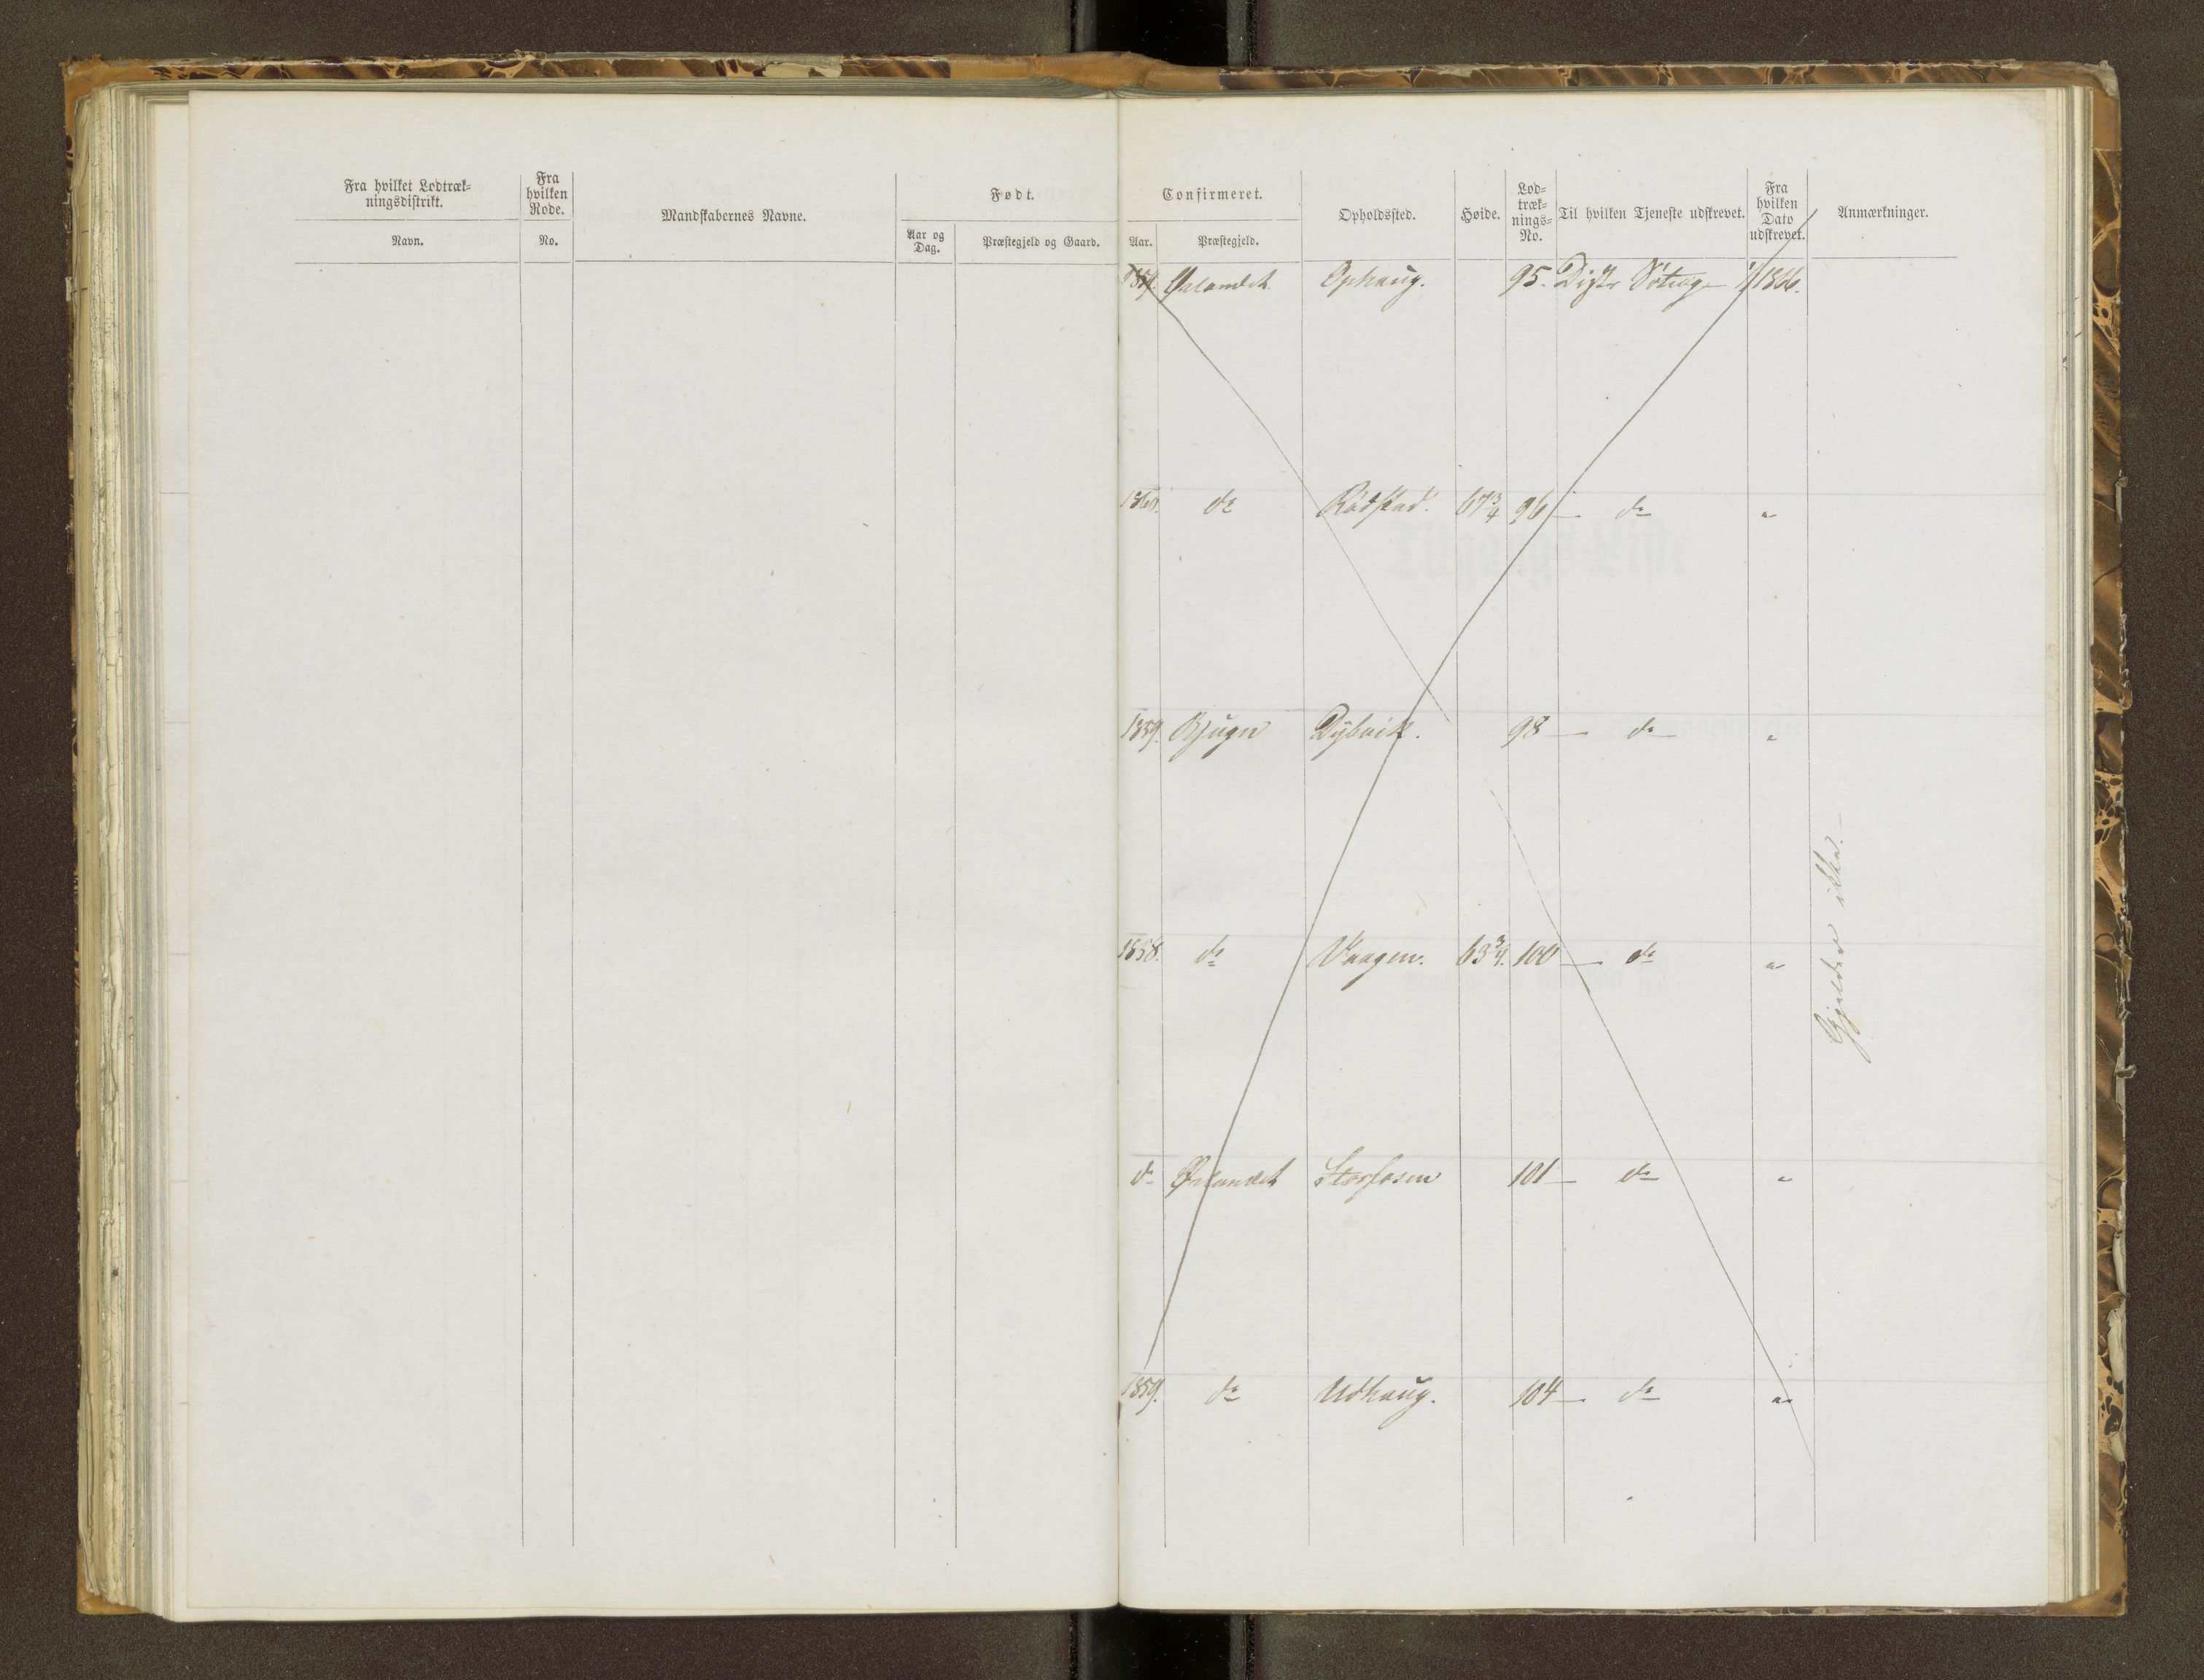 Fra hvilket Lodtræk-
ningsdistrikt.
Navn.
Fra
hvilken
Rode.
No.
Mandskabernes Navne.
Født.
Aar og
Dag.
Præstegjeld og Gaard.
Confirmeret.
Aar.
Præstegjeld.
Opholdssted.
Høide.
Lod-
træk-
nings-
No.
Til hvilken Tjeneste udskrevet.
Fra
hvilken
Dato
udskrevet.
Anmærkninger.
1859. Ørlandet Ophaug. 95. 1866.
1860. do Rødstad. 67 3/4 96 — do "
1859. Bjugn Dybvik. 98 — do "
1858. do Vaagen. 63 3/4. 100 — do "
do Ørlandet Storfosen 101 — do "
1859. do Udhaug. 104 — do "
Gjelder ikke. —